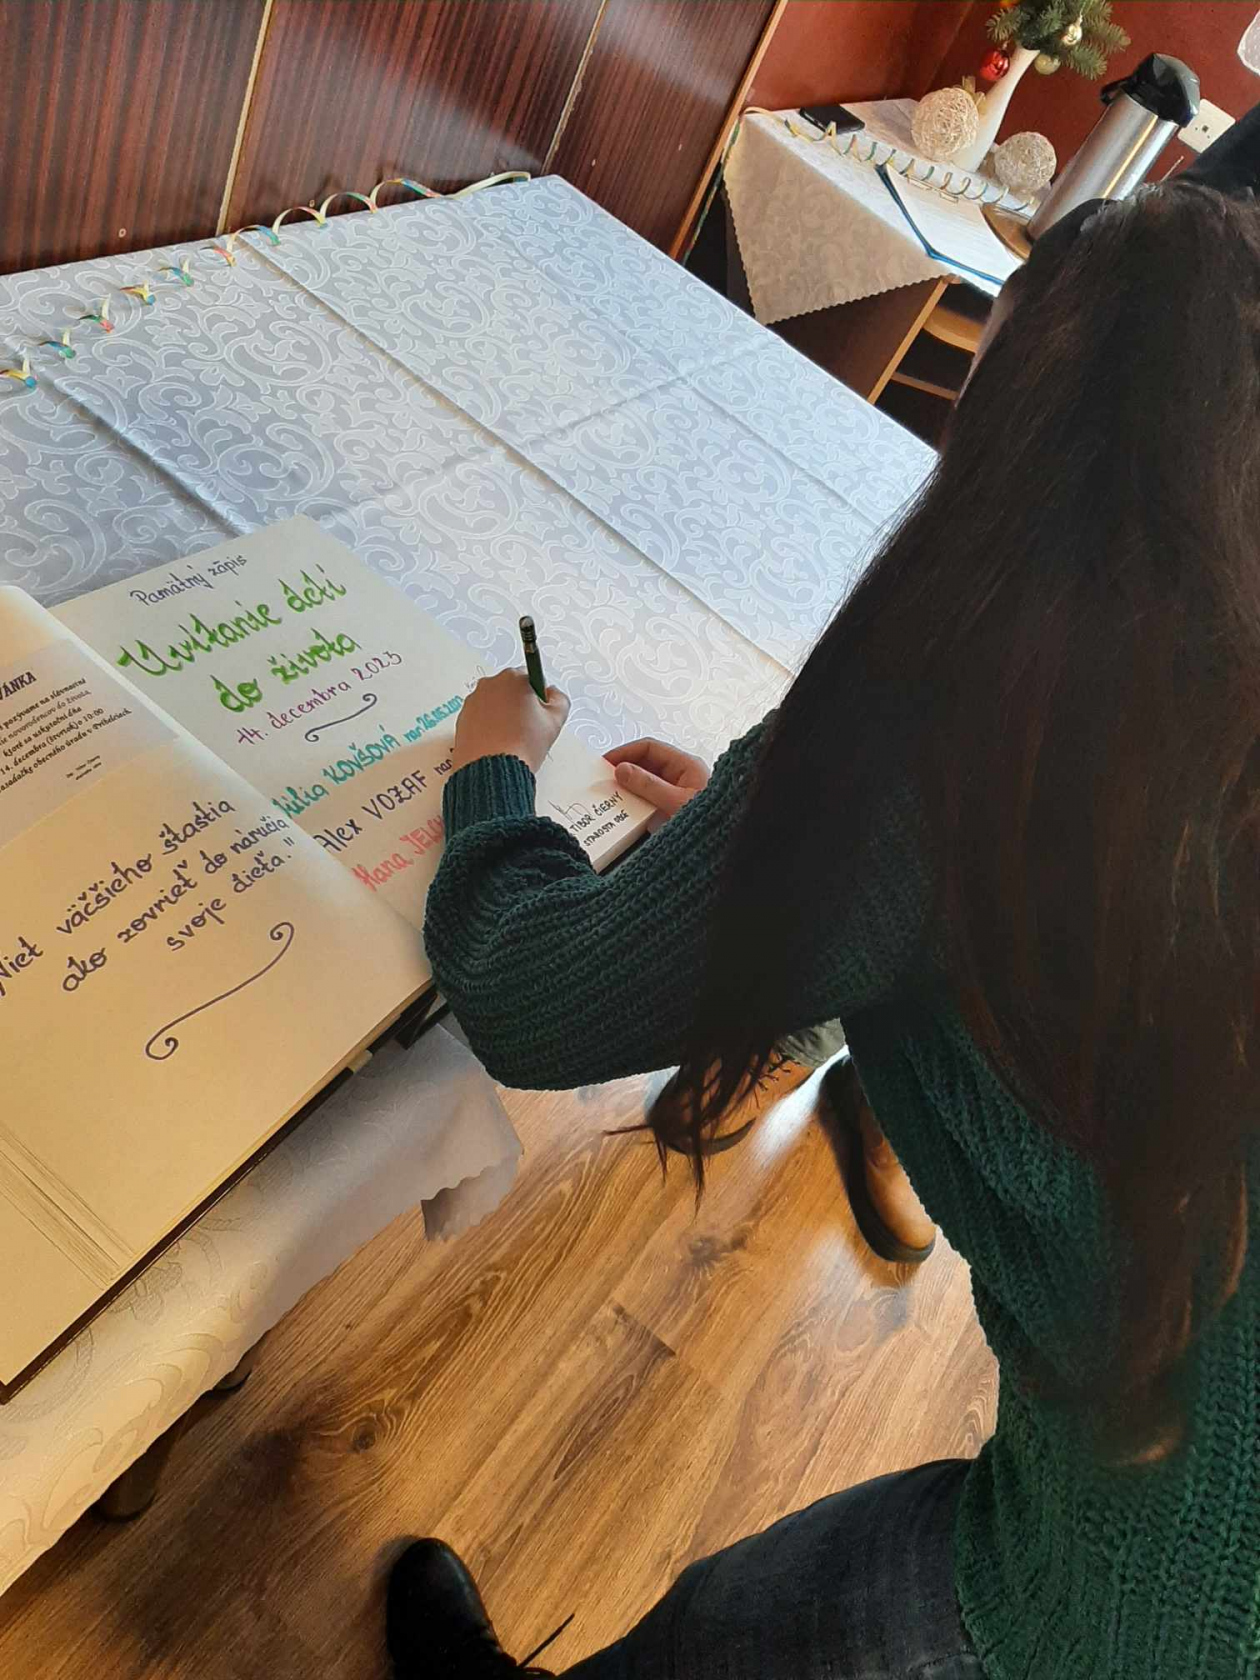 VÁNKA
pozývame na slávnostné
novorodencov do života
ktoré sa uskutoční dňa
14. decembra (štvrtok) o 10:00
zasadačke obecného úradu v Pribeliciach
Niet väčšieho šťastia
ako zovrieť do náručia
svoje dieťa."
Pamätný zápis
Uvítanie detí
do života
14. decembra 2023
KOVŠOVÁ nar. 26.05.2023
Alex VOZAF nar.
Hana JELO
TIBOR ČIERNY
STAROSTA OBCE